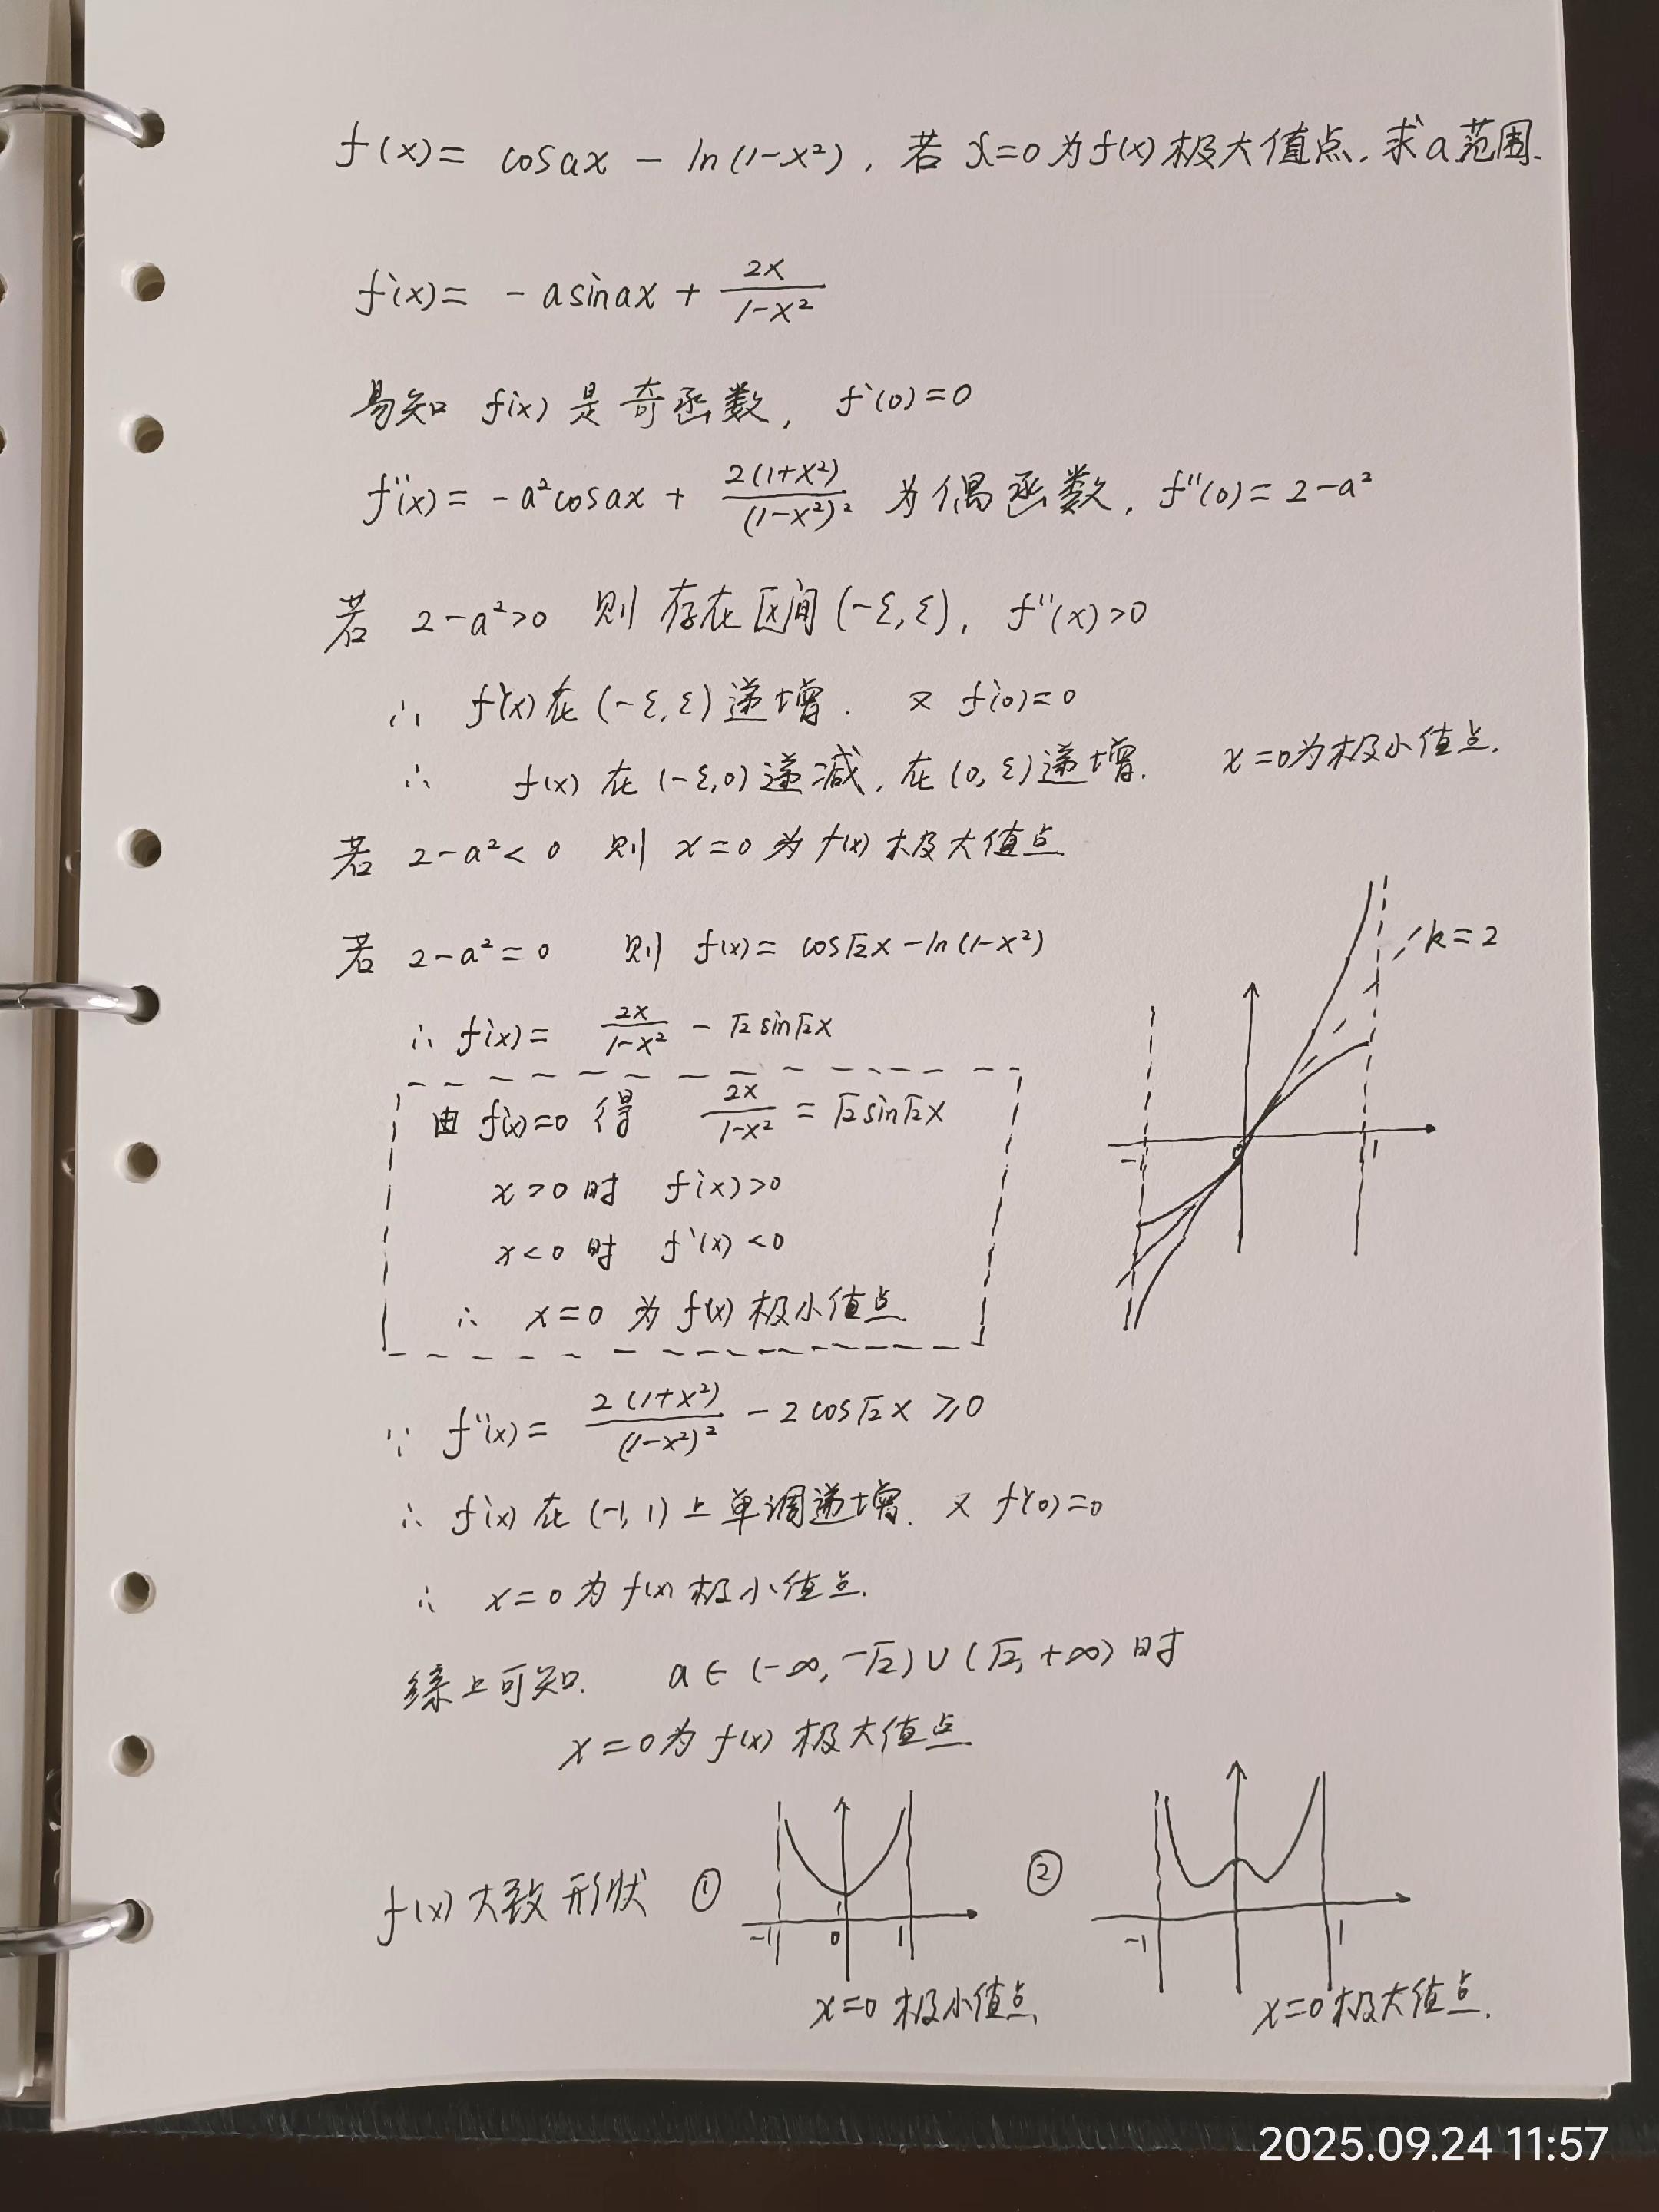 f(x) = cosax - ln(1-x²), 若 x=0 为f(x) 极大值点, 求a范围.
f'(x) = -asinax + 2x/(1-x²)
易知 f'(x) 是奇函数, f'(0)=0
f''(x) = -a²cosax + 2(1+x²)/(1-x²)² 为偶函数, f''(0)=2-a²
若 2-a²>0 则存在区间(-ε,ε), f''(x)>0
∴ f'(x)在(-ε,ε)递增. 又 f'(0)=0
∴ f(x) 在(-ε,0)递减, 在(0,ε)递增. x=0为极小值点.
若 2-a²<0 则 x=0 为 f(x) 极大值点
若 2-a²=0 则 f(x)= cos√2x-ln(1-x²)
k=2
∴ f'(x) = 2x/(1-x²) - √2sin√2x
由 f'(x)=0 得 2x/(1-x²) = √2sin√2x
x>0 时 f'(x)>0
x<0 时 f'(x)<0
∴ x=0 为 f(x) 极小值点
-1 0 1
∵ f''(x) = 2(1+x²)/(1-x²)² - 2cos√2x ≥0
∴ f'(x) 在(-1,1)上单调递增. 又 f'(0)=0
∴ x=0 为 f(x) 极小值点.
综上可知. a∈(-∞,-√2)∪(√2,+∞)时
x=0为 f(x) 极大值点
f(x)大致形状 ① ②
-1 0 1 1
-1 1
x=0 极小值点
x=0极大值点.
2025.09.24 11:57